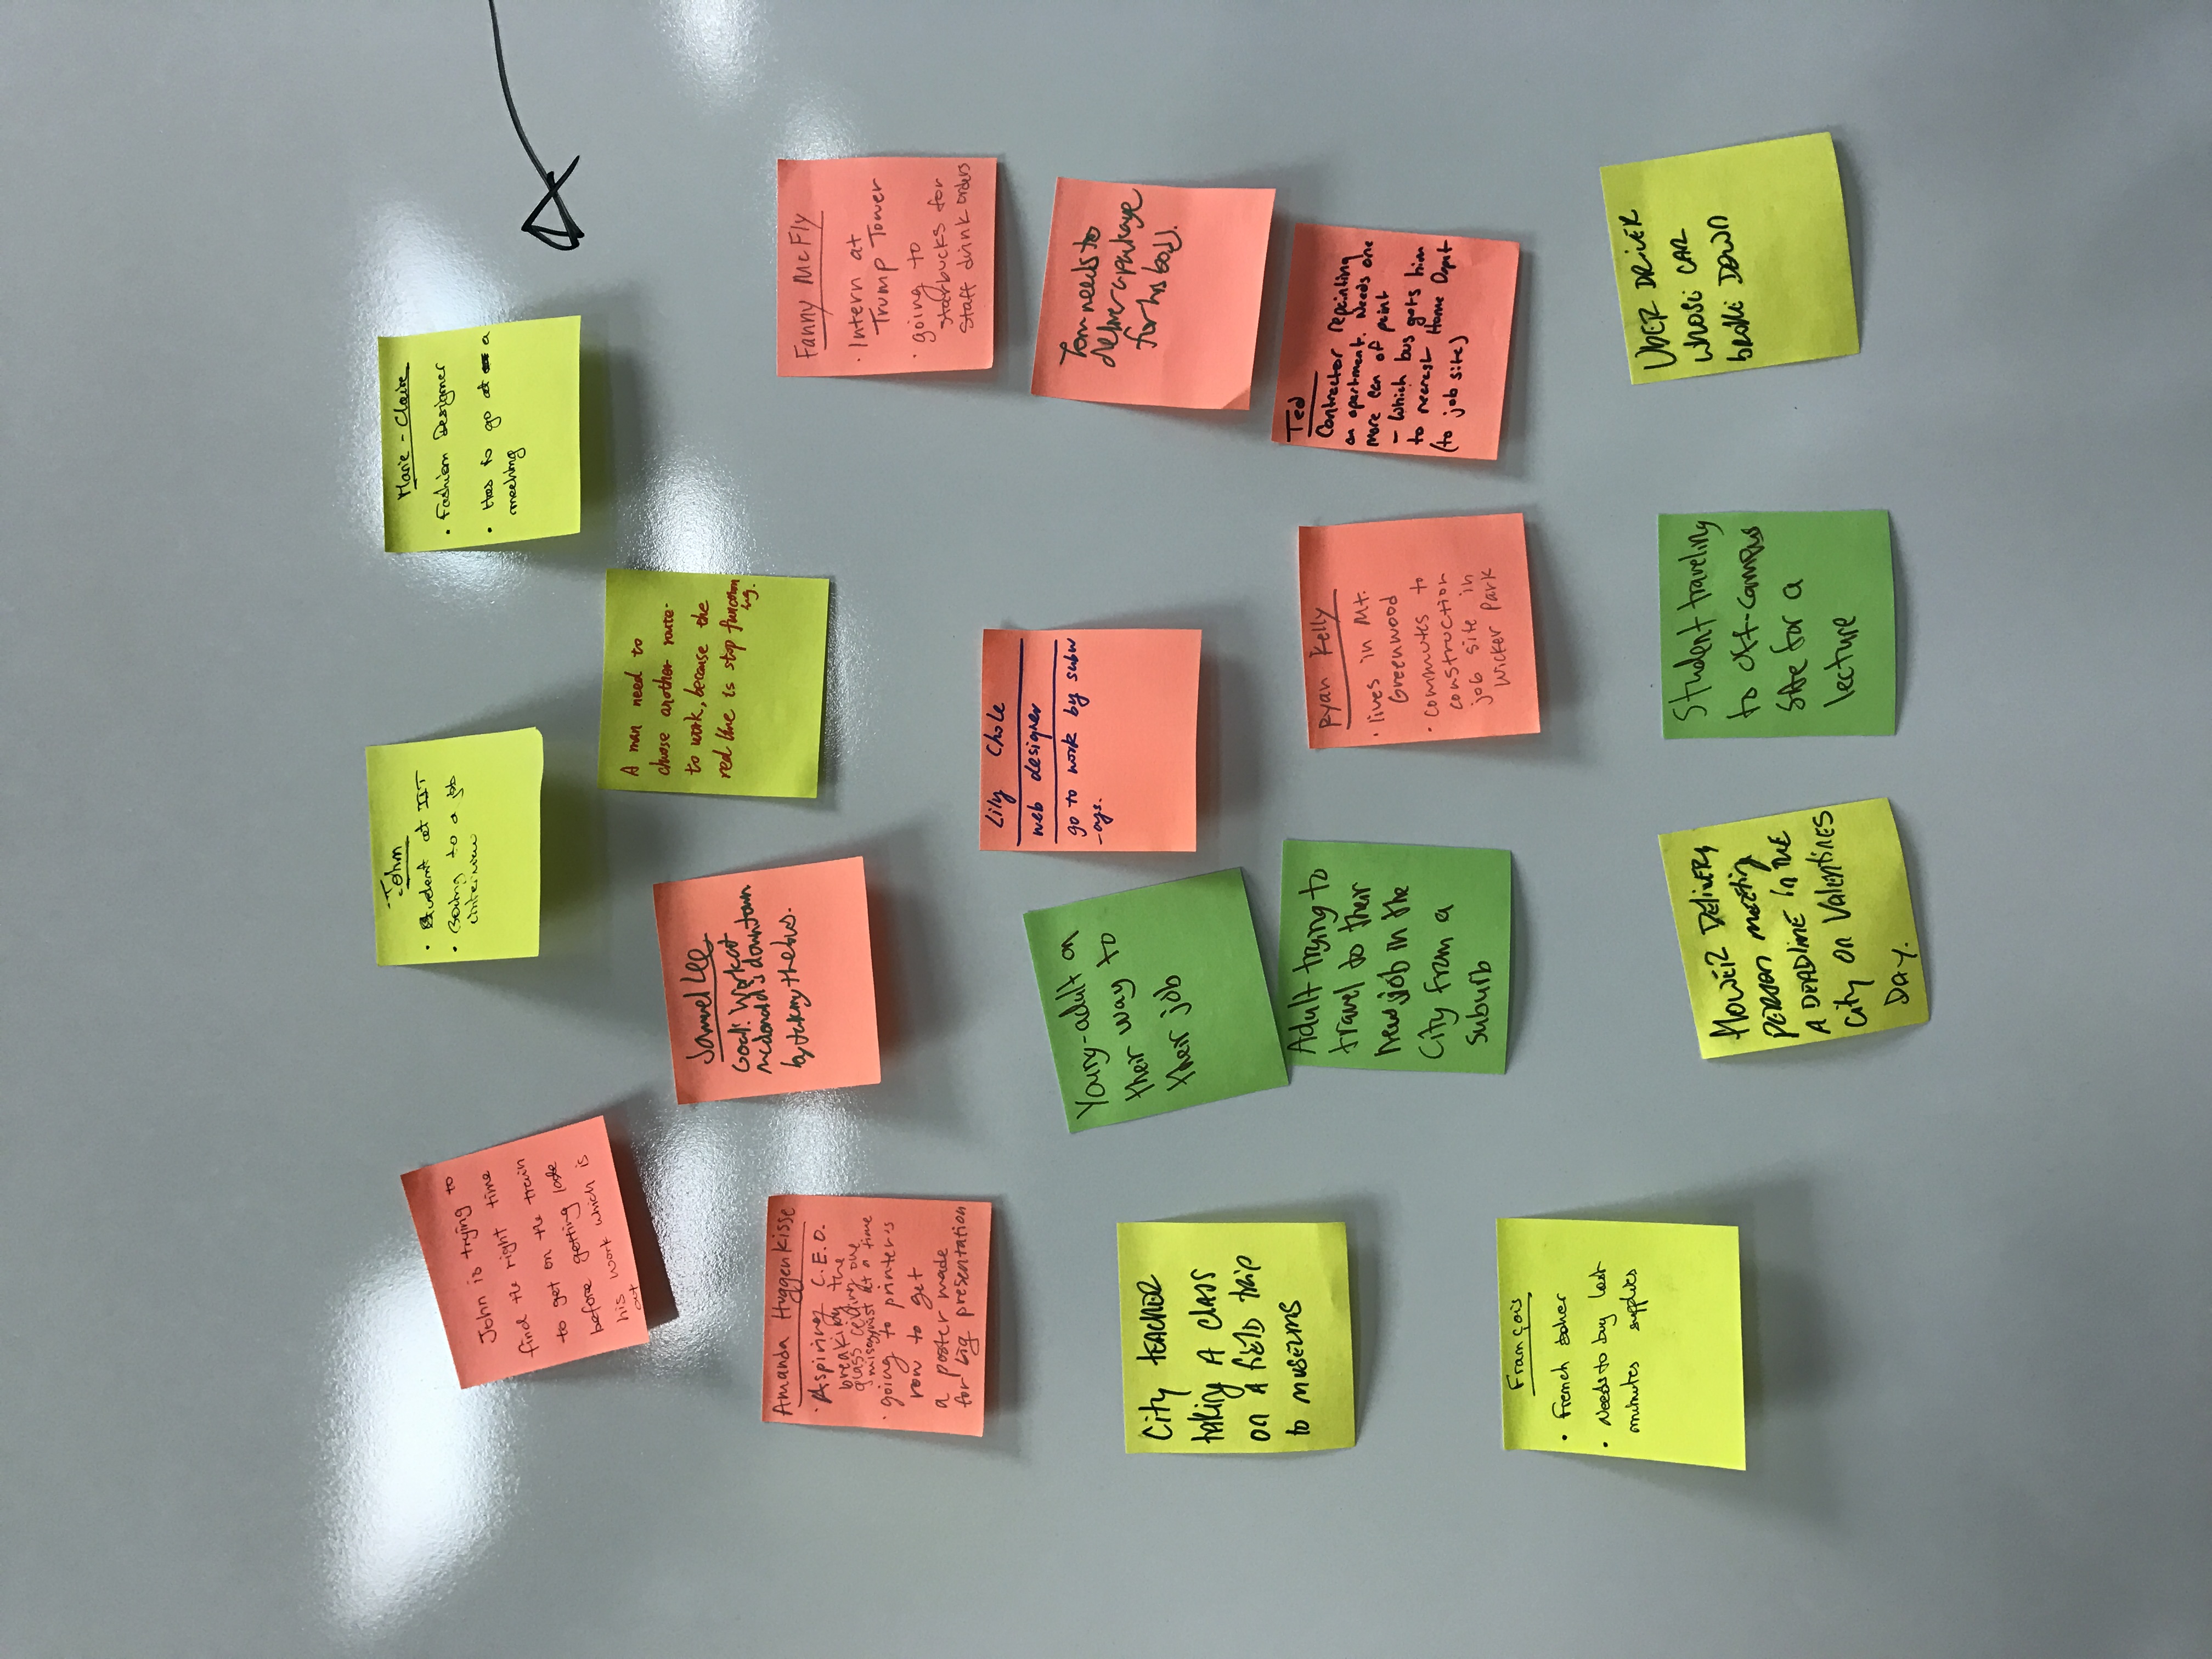 John is trying to
find the right time
to get on the train
before getting late
his work which is
out
John
• Student at IIT
• Going to a job
interview
Marie - Claire
• Fashion Designer
• Has to go at a
meeting
A man need to
choose another route
to work, because the
red line is stop function
ing.
Samuel Lee
Goal: Work at
mcdonald's downtown
by taking the bus.
Amanda Huggenkisse
· Aspiring C.E.O.
breaking the
glass ceiling one
misogynist at a time
· going to printer's
row to get
a poster made
for big presentation
Fanny McFly
· Intern at
Trump Tower
· going to
starbucks for
staff drink orders
Lily Chole
web designer
go to work by subw
-ays.
Young-adult on
their way to
their job
Tom needs to
deliver a package
for his boss.
City TEACHER
taking A class
on A field trip
to museums
Adult trying to
travel to their
new job in the
City from a
suburb
Ryan Kelly
· lives in Mt.
Greenwood
· commutes to
construction
job site in
Wicker Park
Ted
Contractor repainting
an apartment. Needs one
more can of paint
- Which bus gets him
to nearest Home Depot
(to job site)
François
• French baker
• Needs to buy last
minutes supplies
flower Delivery
person meeting
A DEADLINE in the
City on Valentines
Day.
Student traveling
to off-campus
site for a
lecture
UBER DRIVER
whose CAR
broke DOWN